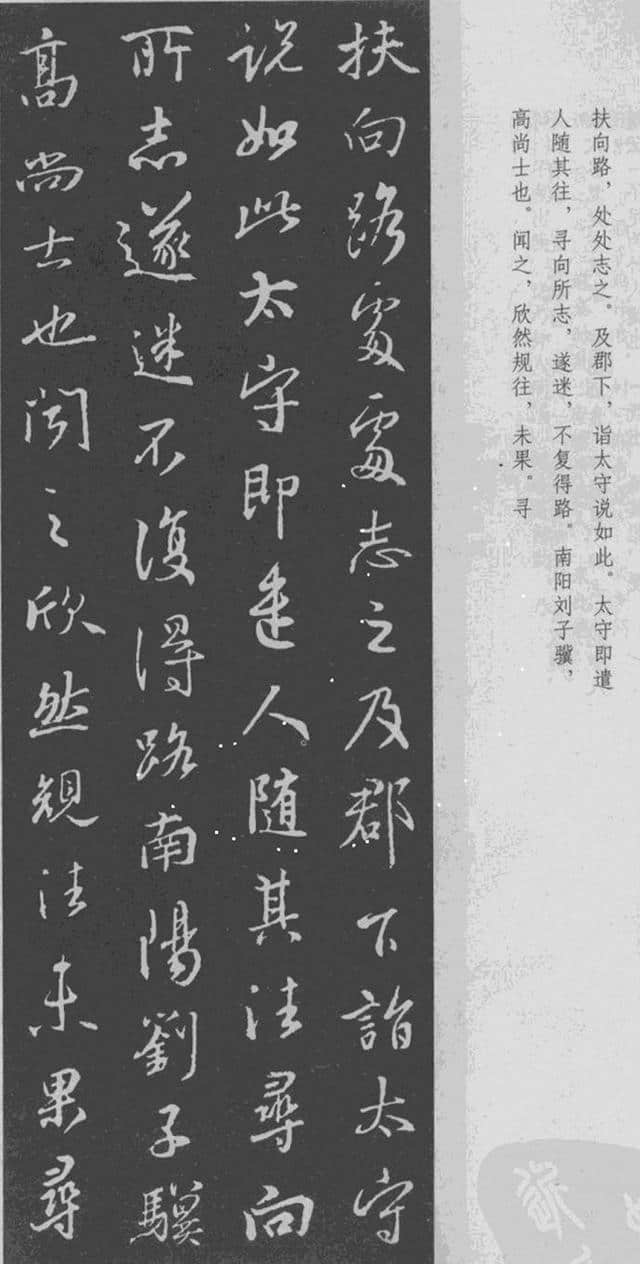 扶向路，处处志之。及郡下，诣太守说如此。太守即遣
人随其往，寻向所志，遂迷，不复得路。南阳刘子骥，
高尚士也。闻之，欣然规往，未果。寻
扶向路處處志之及郡下詣太守
説如此太守即遣人随其往尋向
所志遂迷不復得路南陽劉子驥
高尚士也聞之欣然規往未果尋